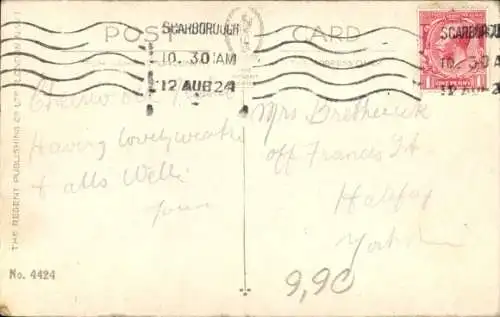 POST CARD
SCARBOROUGH
10. 30 AM
12 AUG 24
SCARBOROU
10. 30 A
12 AUG 2
ONE PENNY
Having lovely weather
& alls Well
Mrs
off Francis St
Halifax
THE REGENT PUBLISHING Co LTD LONDON N.W.1
No. 4424
9,90